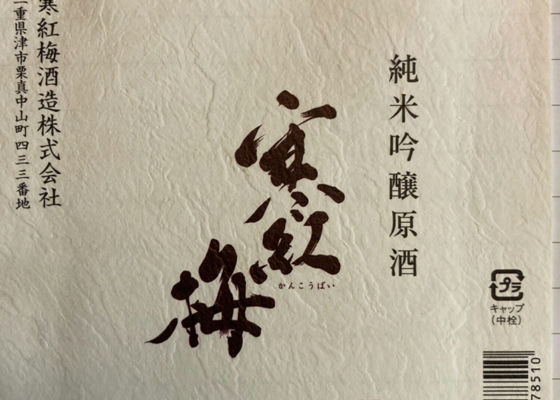 純米吟醸原酒
寒紅梅
かんこうばい
寒紅梅酒造株式会社
重県津市栗真中山町四三三番地
プラ
キャップ
(中栓)
78510